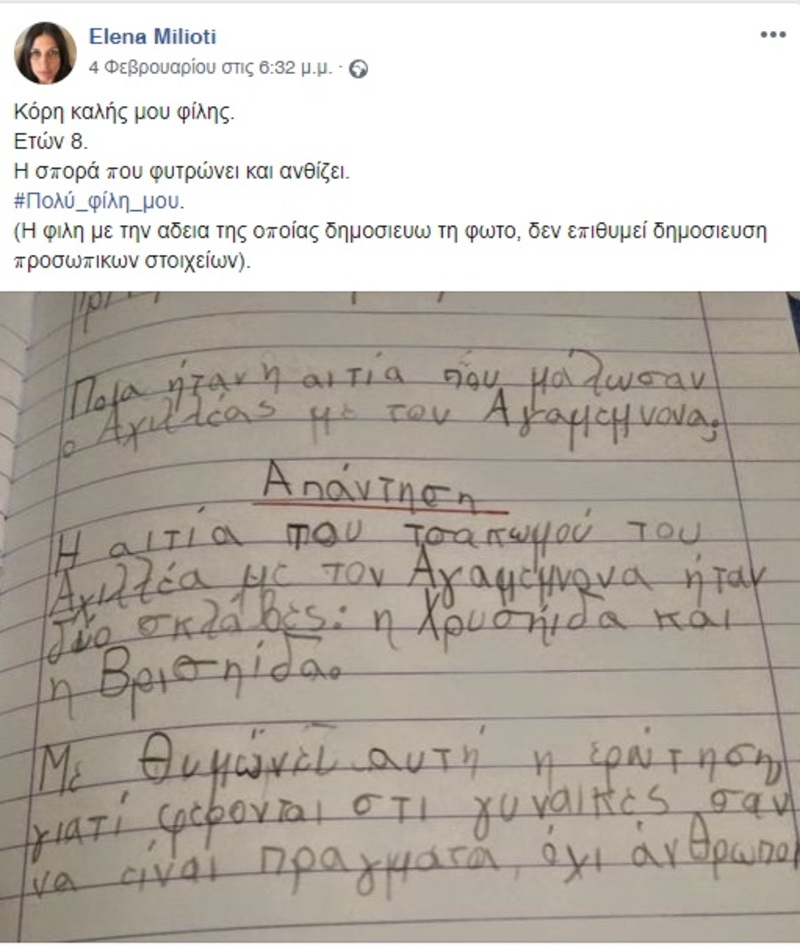 Elena Milioti
4 Φεβρουαρίου στις 6:32 μ.μ. ·
Κόρη καλής μου φίλης.
Ετών 8.
Η σπορά που φυτρώνει και ανθίζει.
#Πολύ_φίλη_μου.
(Η φιλη με την αδεια της οποίας δημοσιευω τη φωτο, δεν επιθυμεί δημοσιευση
προσωπικων στοιχείων).
Ποια ήταν η αιτία που μάλωσαν
ο Αχιλλέας με τον Αγαμεμνονα;
Απάντηση
Η αιτία που τσακωμού του
Αχιλλέα με τον Αγαμεμνονα ήταν
δύο σκλάβες: η Χρυσηίδα και
η Βρισηίδα.
Με θυμώνει αυτή η ερώτηση
γιατί φέρονται στι γυναίκες σαν
να είναι πραγματα, όχι άνθρωποι